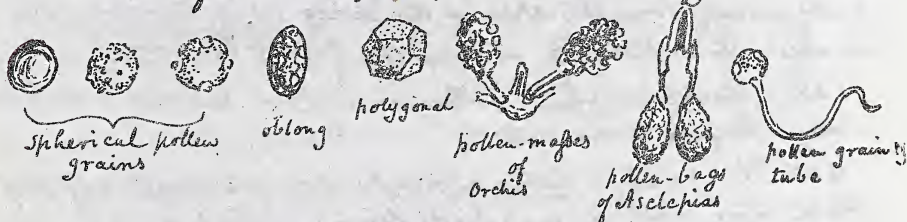 spherical pollen
grains
oblong
polygonal
pollen-masses
of
Orchis
pollen-bags
of Asclepias
pollen grain &
tube